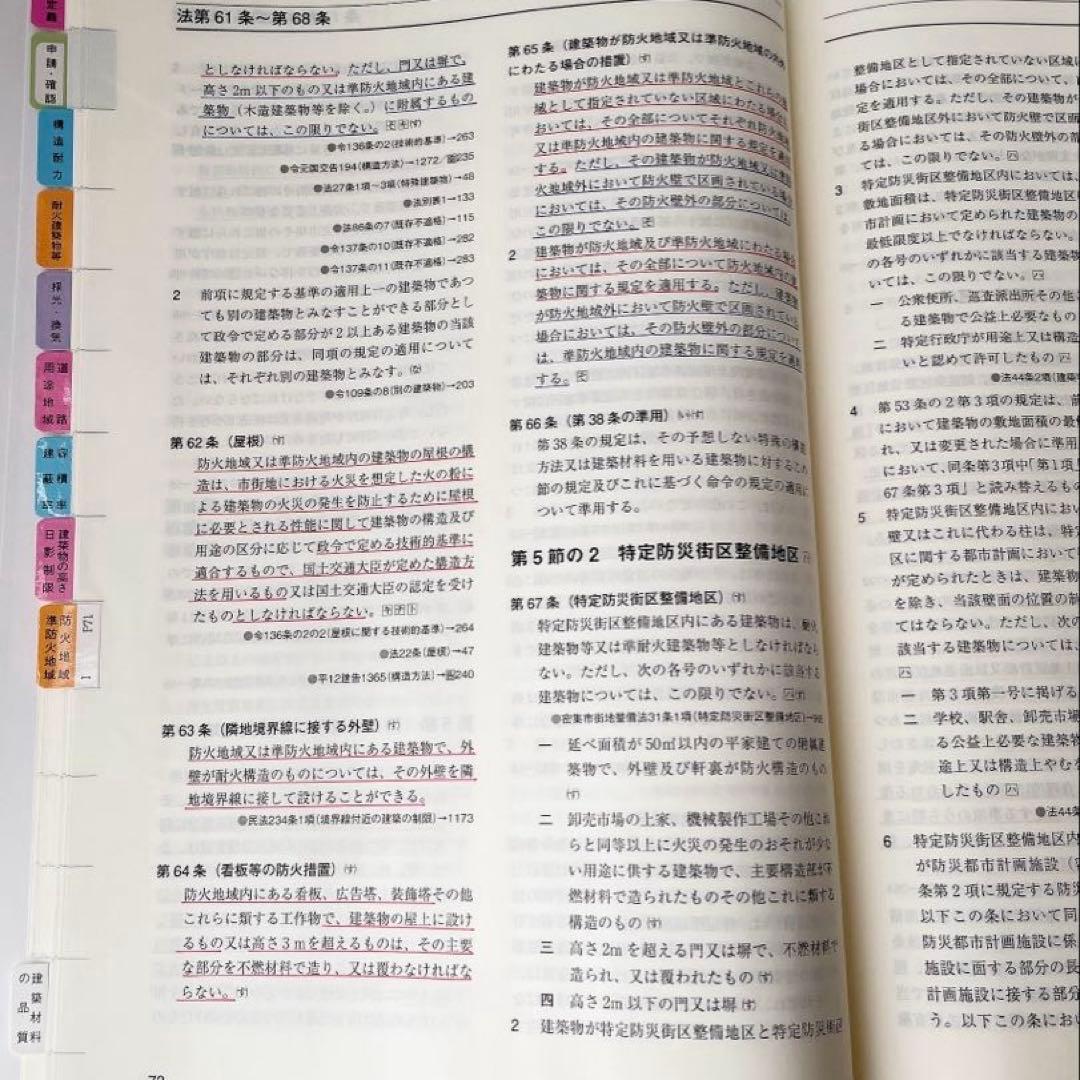 定義
申請・確認
構造耐力
耐火建築物等
採光・換気
道路
用途地域
容積率
建蔽率
建築物の高さ
日影制限
防火地域
準防火地域
建築材料
の品質
法第61条〜第68条
としなければならない。ただし、門又は塀で、
高さ2m以下のもの又は準防火地域内にある建
築物（木造建築物等を除く。）に附属するもの
については、この限りでない。
●令136条の2(技術的基準)→263
●令元国交告194(構造方法)→1272/図235
●法27条1項〜3項(特殊建築物)→48
●法別表1→133
●法86条の7(既存不適格)→115
●令137条の10(既存不適格)→282
●令137条の11(既存不適格)→283
2 前項に規定する基準の適用上一の建築物であつ
ても別の建築物とみなすことができる部分とし
て政令で定める部分が2以上ある建築物の当該
建築物の部分は、同項の規定の適用について
は、それぞれ別の建築物とみなす。
●令109条の8(別の建築物)→203
第62条（屋根）
防火地域又は準防火地域内の建築物の屋根の構
造は、市街地における火災を想定した火の粉に
よる建築物の火災の発生を防止するために屋根
に必要とされる性能に関して建築物の構造及び
用途の区分に応じて政令で定める技術的基準に
適合するもので、国土交通大臣が定めた構造方
法を用いるもの又は国土交通大臣の認定を受け
たものとしなければならない。
●令136条の2の2(屋根に関する技術的基準)→264
●法22条(屋根)→47
●平12建告1365(構造方法)→図240
第63条（隣地境界線に接する外壁）
防火地域又は準防火地域内にある建築物で、外
壁が耐火構造のものについては、その外壁を隣
地境界線に接して設けることができる。
●民法234条1項(境界線付近の建築の制限)→1173
第64条（看板等の防火措置）
防火地域内にある看板、広告塔、装飾塔その他
これらに類する工作物で、建築物の屋上に設け
るもの又は高さ3mを超えるものは、その主要
な部分を不燃材料で造り、又は覆わなければな
らない。
第65条（建築物が防火地域又は準防火地域の内外
にわたる場合の措置）
建築物が防火地域又は準防火地域とこれらの地
域として指定されていない区域にわたる場合に
おいては、その全部についてそれぞれ防火地域
又は準防火地域内の建築物に関する規定を適用
する。ただし、その建築物が防火地域又は準防
火地域外において防火壁で区画されている場合
においては、その防火壁外の部分については、
この限りでない。
2 建築物が防火地域及び準防火地域にわたる場合
においては、その全部について防火地域内の建
築物に関する規定を適用する。ただし、建築物
が防火地域外において防火壁で区画されている
場合においては、その防火壁外の部分について
は、準防火地域内の建築物に関する規定を適用
する。
第66条（第38条の準用）
第38条の規定は、その予想しない特殊の構造
方法又は建築材料を用いる建築物に対するこの
節の規定及びこれに基づく命令の規定の適用に
ついて準用する。
第5節の2 特定防災街区整備地区
第67条（特定防災街区整備地区）
特定防災街区整備地区内にある建築物は、耐火
建築物等又は準耐火建築物等としなければなら
ない。ただし、次の各号のいずれかに該当する
建築物については、この限りでない。
●密集市街地整備法31条1項(特定防災街区整備地区)→
一 延べ面積が50㎡以内の平家建ての附属建
築物で、外壁及び軒裏が防火構造のもの
二 卸売市場の上家、機械製作工場その他これ
らと同等以上に火災の発生のおそれが少な
い用途に供する建築物で、主要構造部が不
燃材料で造られたものその他これに類する
構造のもの
三 高さ2mを超える門又は塀で、不燃材料で
造られ、又は覆われたもの
四 高さ2m以下の門又は塀
2 建築物が特定防災街区整備地区と特定防災街区
整備地区として指定されていない区域に
場合においては、その全部について、
定を適用する。ただし、その建築物が
街区整備地区外において防火壁で区画
る場合においては、その防火壁外の部
ては、この限りでない。
3 特定防災街区整備地区内においては、
敷地面積は、特定防災街区整備地区に
市計画において定められた建築物の
最低限度以上でなければならない。
の各号のいずれかに該当する建築物
いては、この限りでない。
一 公衆便所、巡査派出所その他
る建築物で公益上必要なもの
二 特定行政庁が用途上又は構造
いと認めて許可したもの
●法44条2項(建築
4 第53条の2第3項の規定は、前
において建築物の敷地面積の最低
れ、又は変更された場合に準用
において、同条第3項中「第1項
67条第3項」と読み替えるもの
5 特定防災街区整備地区内におい
壁又はこれに代わる柱は、特定
区に関する都市計画において
が定められたときは、建築物
を除き、当該壁面の位置の制
てはならない。ただし、次の
該当する建築物については、
一 第3項第一号に掲げる
二 学校、駅舎、卸売市場
る公益上必要な建築物
途上又は構造上やむを
したもの
●法44条
6 特定防災街区整備地区内
が防災都市計画施設（密
条第2項に規定する防災
以下この条において同
防災都市計画施設に係
施設に面する部分の長
計画施設に接する部分
う。以下この条におい